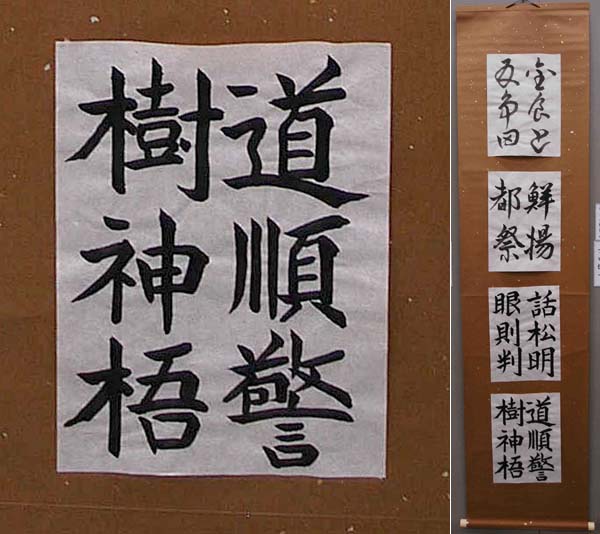 道順警
樹神梧
鮮揚
都祭
話松明
眼則判
道順警
樹神梧